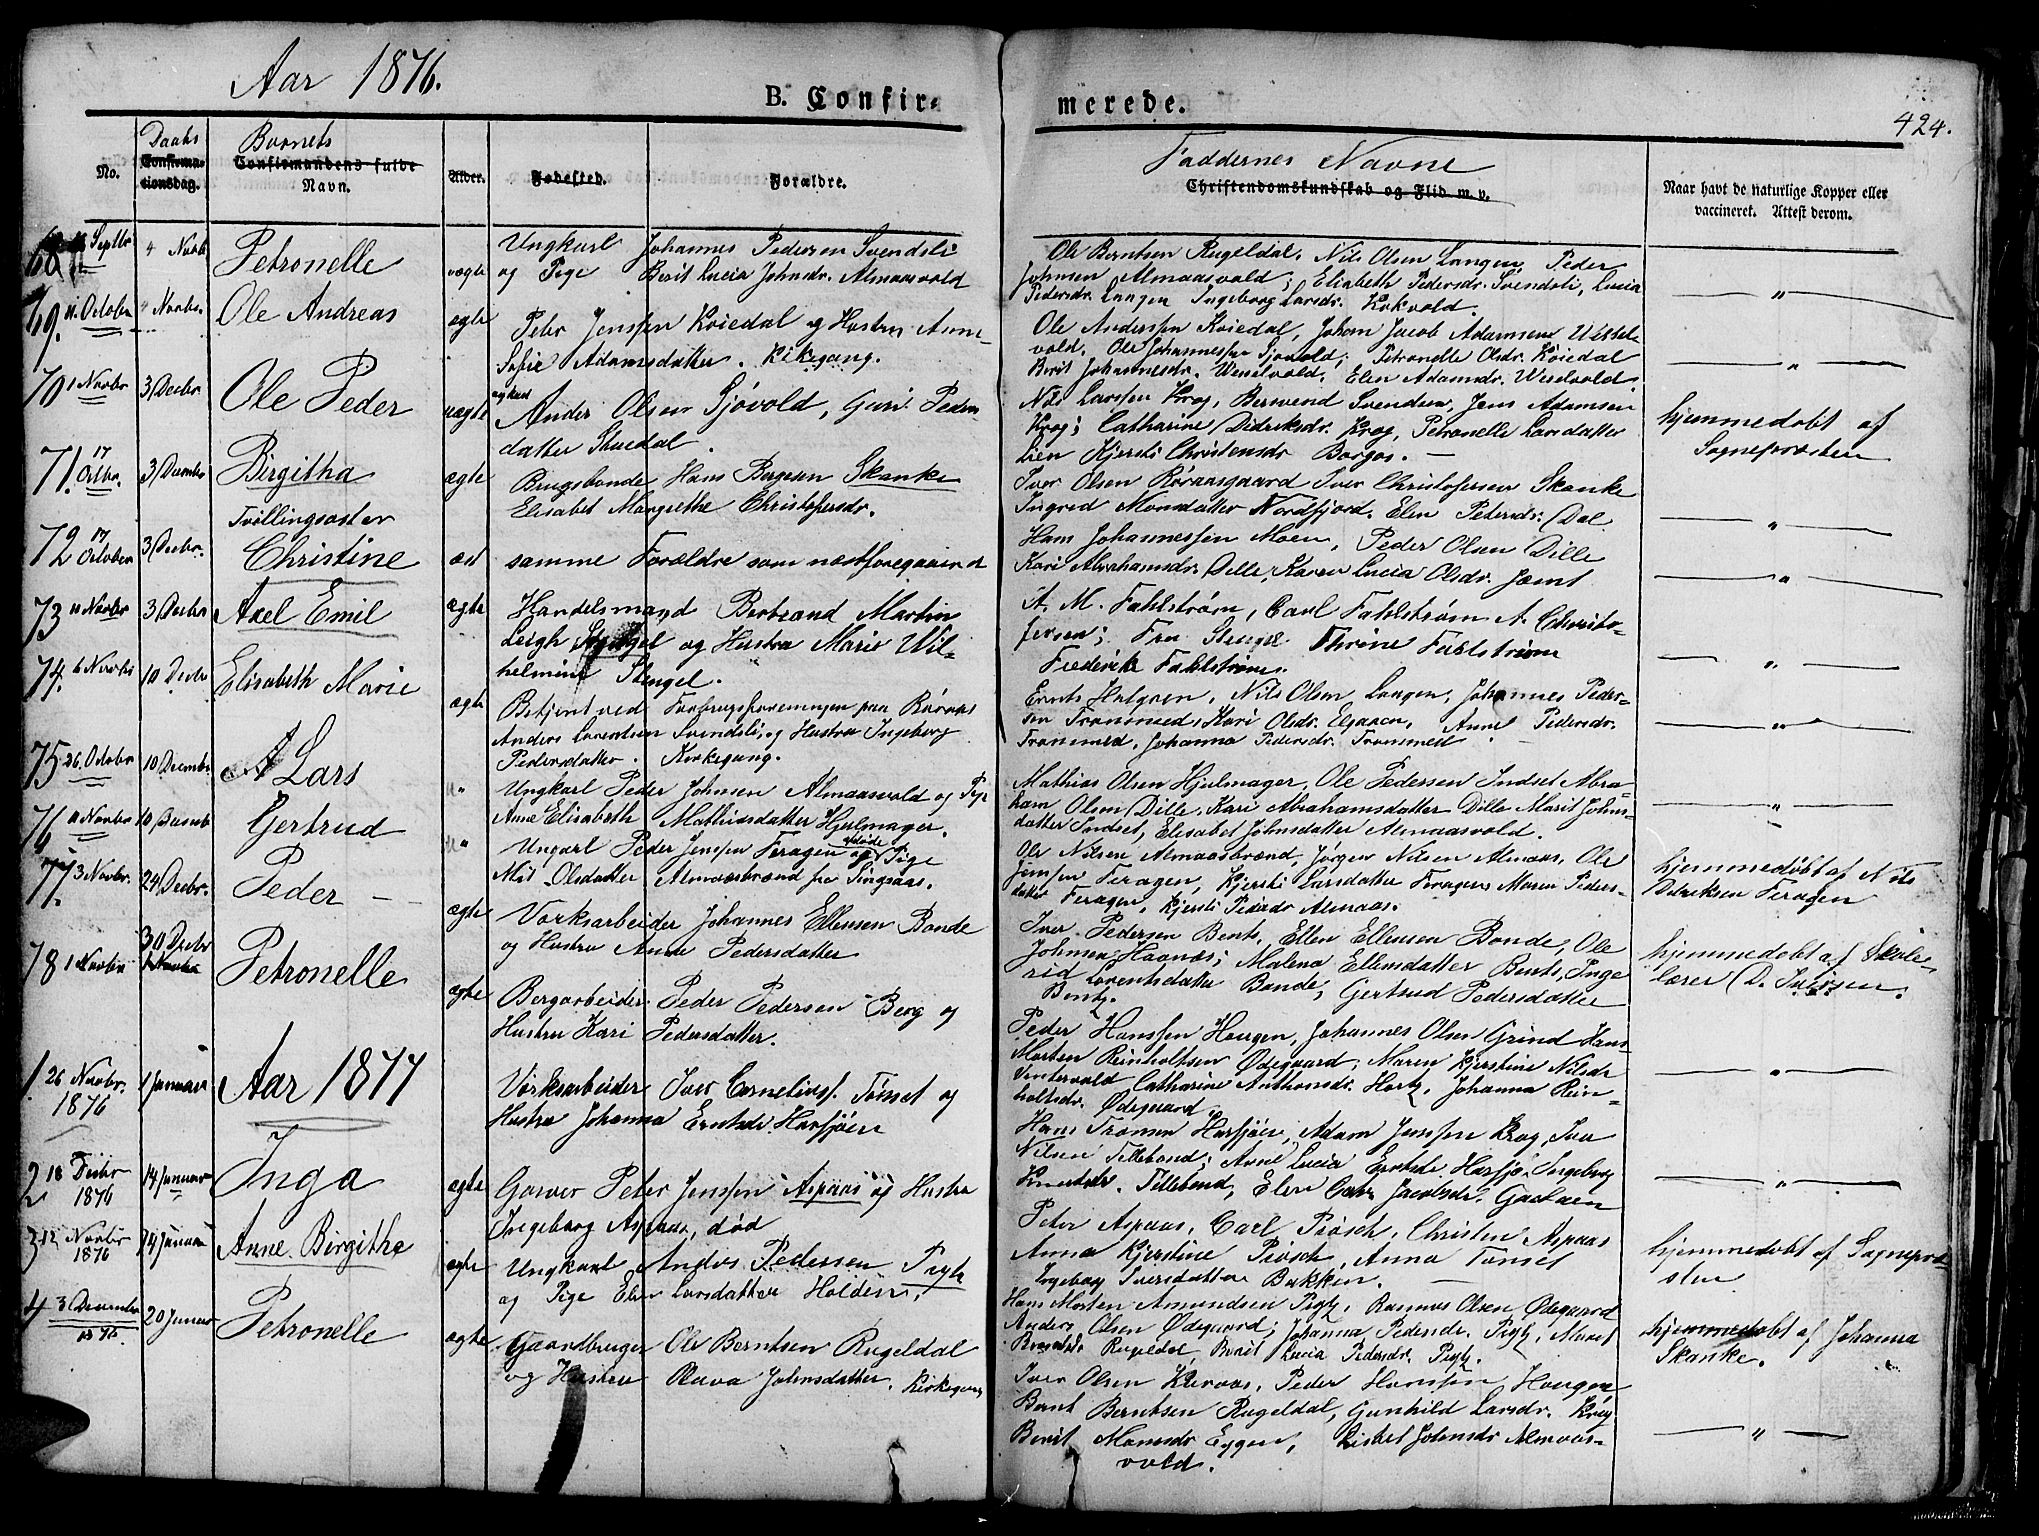 Aar 1876.
B. Confir-
merede.
424.
No.
Daabs
Confirma-
tionsdag.
Barnets
Confirmandens fulde
Navn.
Alder.
Fødested.
Forældre.
Faddernes Navne
Christendomskundskab og Flid m.v.
Naar havt de naturlige Kopper eller
vaccineret. Attest derom.
68 Septbr
4 Novb
Petronelle
uægte
Ungkarl Johannes Pedersen Svendsli
og Pige Berit Lucia Johnsdr. Almaasvold
Ole Berntsen Rugeldal, Nils Olsen Langen, Peder
Johnsen Almaasvold; Elisabeth Pedersdr. Svendsli, Lucia
Pedersdr. Langen Ingeborg Larsdr. Kokvold.
"
69. 11 October
" Novbr.
Ole Andreas
ægte
Peter Jenssen Koiedal og Hustru Anne
Sofie Adamsdatter. Kirkegang.
Ole Anderssen Koiedal, Johan Jacob Adamsen Wessel-
vold. Ole Johannessen Sjøvold; Petronelle Olsdr. Koiedal
Berit Johannesdr. Wesselvold, Elen Adamsdr. Wesselvold.
"
70 1 Novbr
3/Decbr.
Ole Peder
uægte
Ungkarl
Anders Olsen Sjøvold, Guri Peders
datter Stuedal.
Nils Larssen Krog, Berwend Svendsen, Jens Adamsen
Krog; Catharine Didriksdr. Krog, Petronelle Larsdatter
Lien Kjersti Christensdr Borgos. —
hjemmedøbt af
Sognepræsten
71. 17 Octbr.
3/Decembr
Birgitha
ægte
Brugsbonde Hans Bergesen Skanke
Elisabet Margrethe Christofersdr.
Iver Olsen Røraasgaard Iver Christofersen Skanke
Ingrid Monsdatter Nordfjord. Elen Petersdr. Dal
"
Tvillingsøster
72 17 October
3/Decbr.
Christine
æst
samme Forældre som næstforegaaend
Hans Johannessen Moen, Peder Olsen Dille
Kari Abrahamsdr. Dille, Karen Lucia Olsdr. Jamt
"
73 11 Novbr
3/Decbr
Axel Emil
ægte
Handelsmand Bertrand Martin
Leigh Stengel og Hustru Marie Wil-
helmine Stengel.
A. M. Fahlstrøm, Carl Fahlstrøm A. Christo-
fersen; Fru Stengel. Thrine Fahlstrøm
Frederik Fahlstrøm.
"
74. 6 Novbr
10 Decbr
Elisabeth Marie
ægte
Betjent ved Forbrugsforeningen paa Røraas
Anders Lorentsen Svendsli, og Hustru Ingeborg
Pedersdatter. Kirkegang.
Ernts Hulgren, Nils Olsen Langen, Johannes Peder-
sen Trønmed, Kari Olsdr. Egaaen, Anne Pedersdr.
Tronmed, Johanna Pedersdr. Tronmed
"
75 26. October
10 Decembr
Lars
"
Ungkarl Peder Johnsen Almaasvold og Pige
Ane Elisabeth Mathiasdatter Hjulmager.
Mathias Olsen Hjulmager, Ole Pedersen Indset Abra-
ham Olsen Dille, Kari Abrahamsdatter Dille Marit Johns-
datter Indset, Elisabet Johnsdatter Almaasvold.
"
76 11 Novbr
10 Decemb
Gertrud
"
Ungkarl Peder Jenssen Feragen og Pige
Mit Olsdatter Almaasbrænd fra Singsaas.
Ole Nilsen Almaasbrænd, Jørgen Nilsen Almaas, Ole
Jenssen Feragen, Kjersti Larsdatter Feragen Maren Peders-
datter Feragen, Kjersti Pedersdr Almaas.
hjemmedøbt af Nils
Didriksen Feragen
77. 3 Novbr.
24 Decbr.
Peder
ægte
Værksarbeider Johannes Ellensen Bonde
og Hustru Anne Pedersdatter
Iver Pedersen Bents, Ellen Ellensen Bonde, Ole
Johnsen Haanæs; Malena Ellensdatter Bents, Inge
rid Lorentsdatter Bonde, Gertrud Pedersdatter
Bentz.
hjemmedøbt af Skole-
lærer D. Iversen.
78 1 Novbr
30 Decbr
Petronelle
ægte
Bergarbeider Peder Pedersen Berg og
Hustru Kari Pedersdatter.
Peder Hanssen Hougen, Johannes Olsen Grind Hans
Morten Reinholtsen Ødegaard; Maren Kjerstine Nilsdr
Vintervold Catharine Anthonsdr. Hortz, Johanna Rein-
holtsdr. Ødegaard.
"
Aar 1877
1. 26 Novbr. 1876
1 Januar
Værksarbeider Iver Cornelius. Tønset og
Hustru Johanna Erntsdr. Harsjøen
Hans Tronsen Harsjøen, Adam Jenssen Krog, Iver
Nilsen Tillebond; Anne Lucia Erntsdr Harsjø, Ingeborg
Knutsdr. Tillebond, Elen Cath. Jacobsdr. Gaasaen
"
2 18 Decbr 1876
14 Januar
Inga
ægte
Garver Peter Jenssen Aspaas og Hustru
Ingeborg Aspaas, død
Peter Aspaas, Carl Prøsch, Christen Aspaas
Anna Kjerstine Prosch, Anna Tønset
Ingeborg Iversdatter Bakken. —
hjemmedøbt af Sognepræ-
sten
3 12 Novbr 1876
14 Januar
Anne Birgitha
ægte
Ungkarl Anders Pedersen Pigtz
og Pige Elen Larsdatter Holden.
Hans Morten Asmundsen Pigtz, Rasmus Olsen Ødegaard
Anders Olsen Ødegaard; Johanna Pedersdr. Pigtz, Marit
Berntsdr. Rugeldal, Berit Lucia Pedersdr. Pigtz.
hjemmedøbt af Johanna
Skanke.
4 3 December 1876
20 Januar
Petronelle
ægte
Gaardbruger Ole Berntsen Rugeldal
og Hustru Olava Johnsdatter. Kirkegang
Iver Olsen Kuraas, Peder Hanssen Hougen
Bernt Berntsen Rugeldal, Gunhild Larsdr. Krog
Berit Monsdr Eggen, Lisbet Johnsdr Almaas-
vold.
"